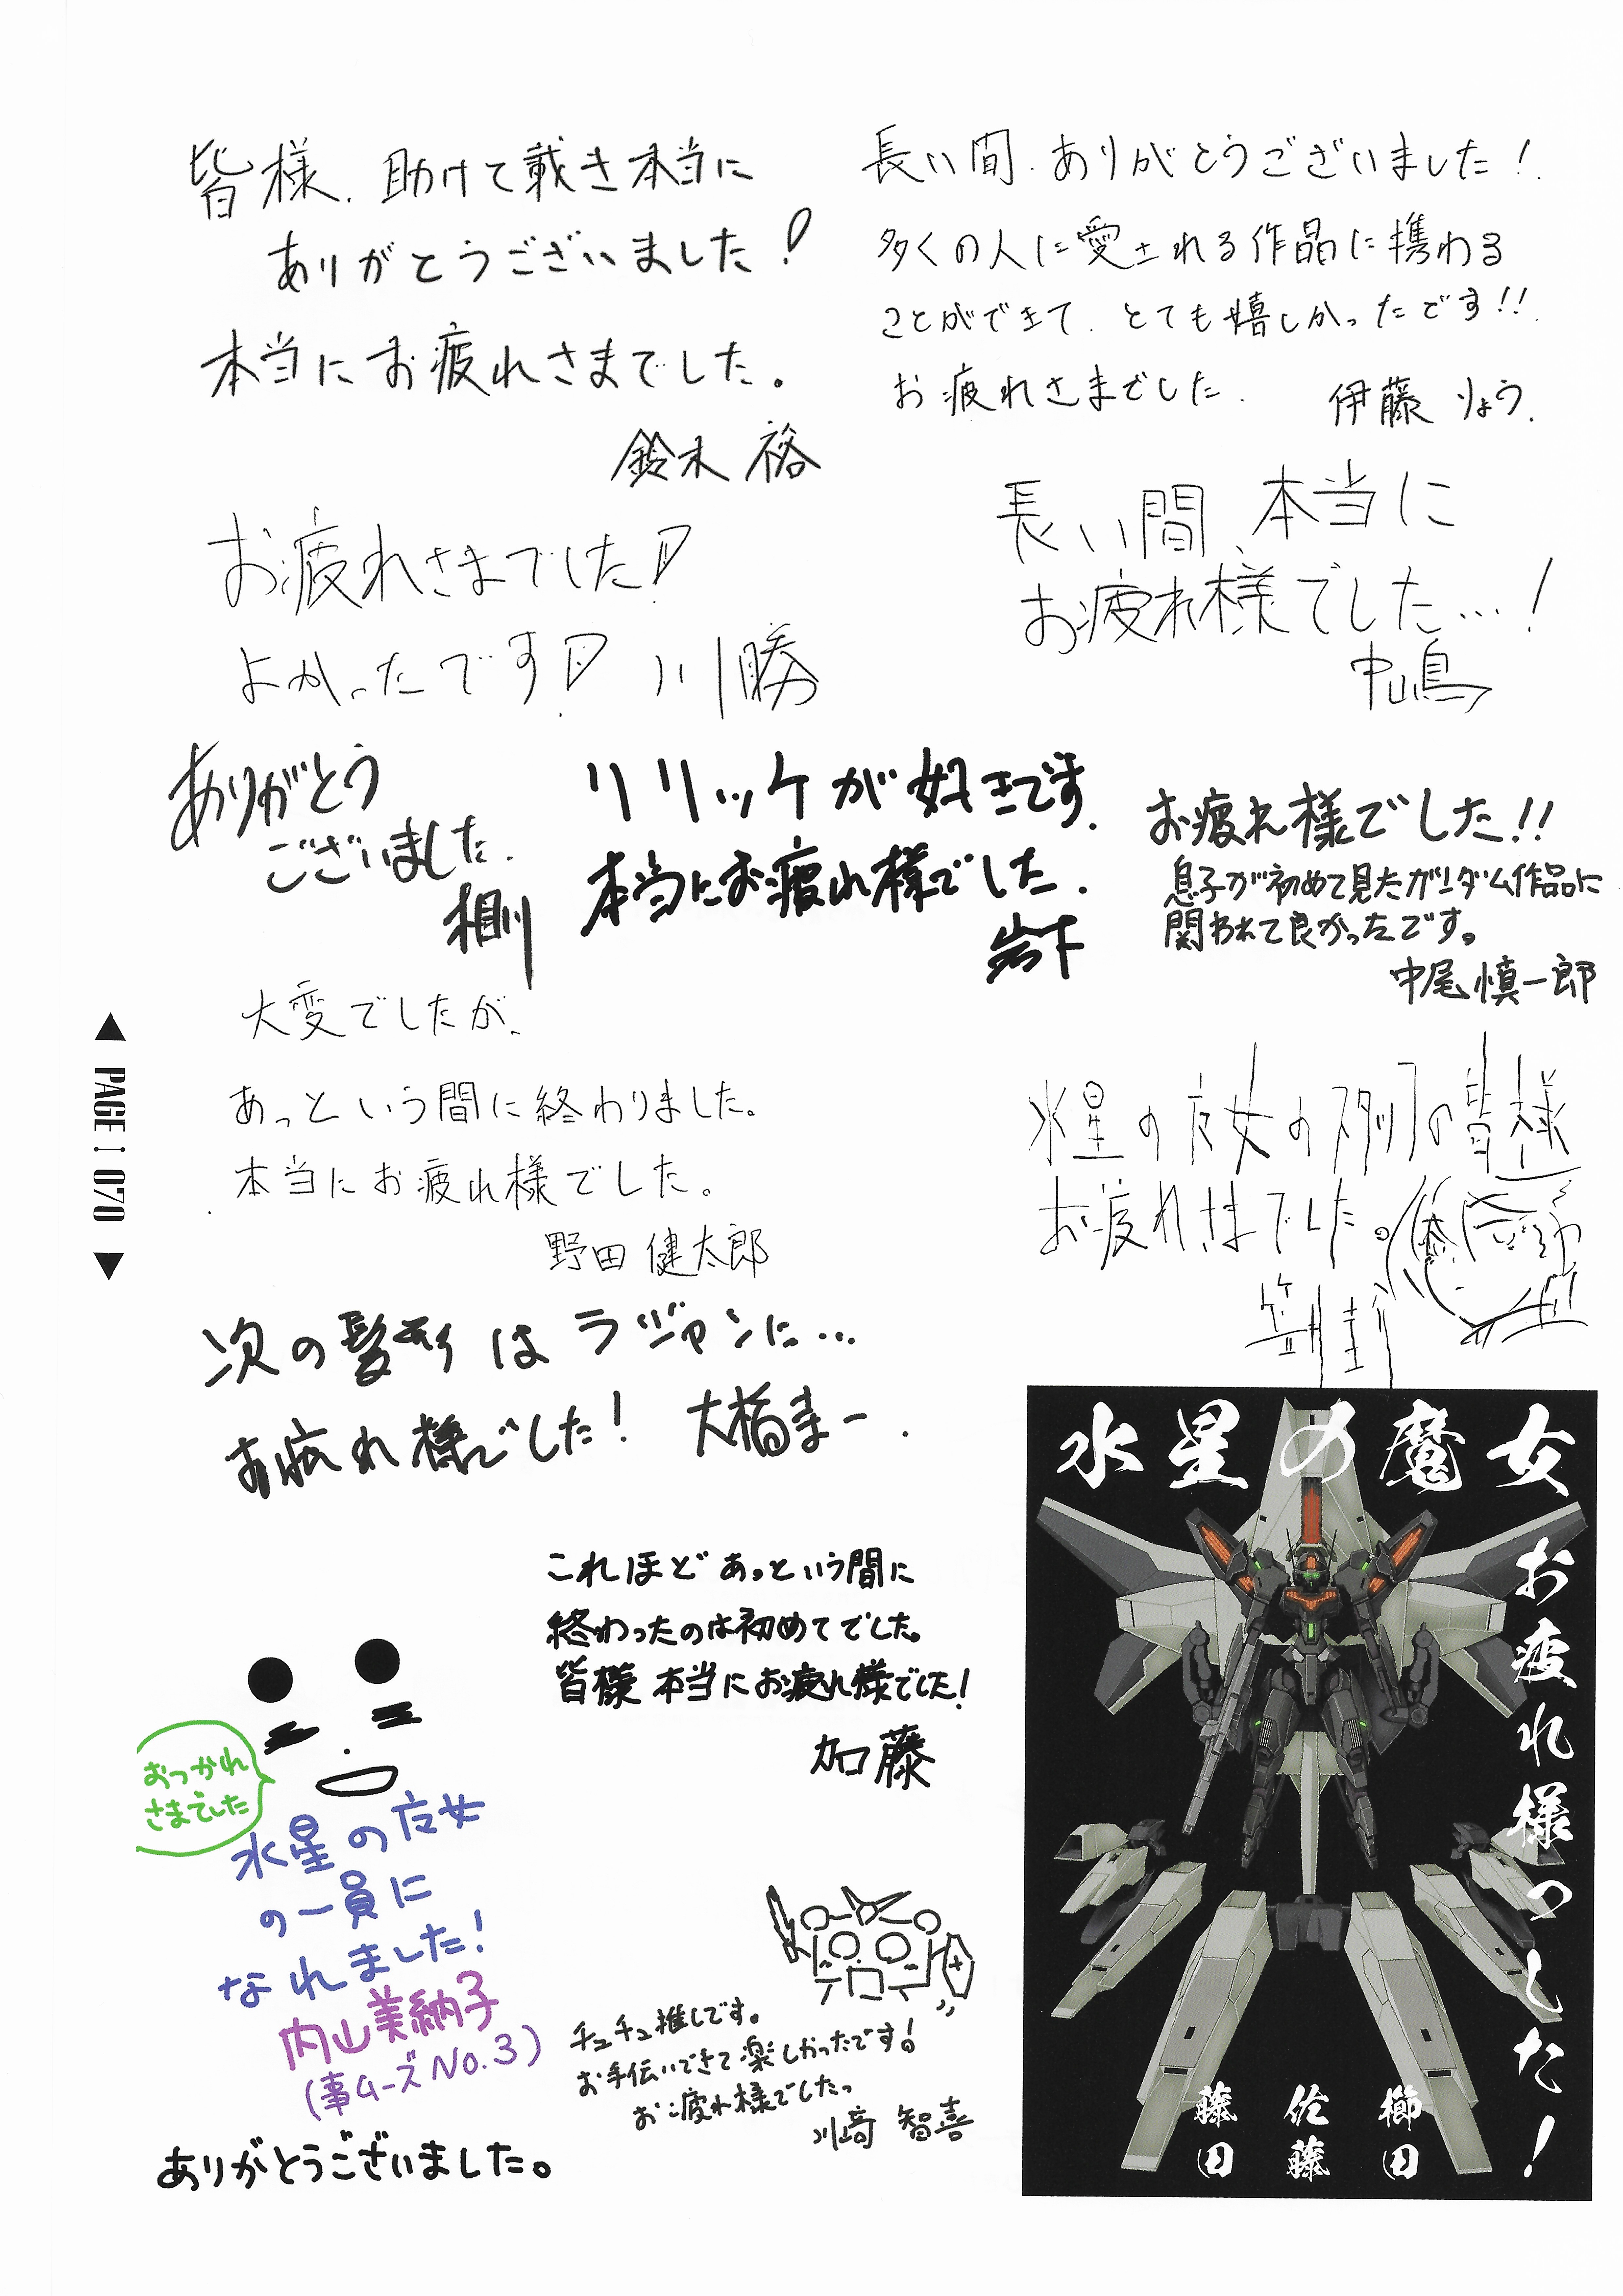 皆様、助けて戴き本当に
ありがとうございました!
本当にお疲れさまでした。
鈴木 裕
長い間、ありがとうございました!
多くの人に愛される作品に携わる
ことができて、とても嬉しかったです!!
お疲れさまでした。
伊藤 りょう
お疲れさまでした!
よかったです! 川勝
長い間、本当に
お疲れ様でした…!
中嶋
ありがとう
ございました。
相川
リリッケが好きです。
本当にお疲れ様でした。
岩下
お疲れ様でした!!
息子が初めて見たガンダム作品に
関われて良かったです。
中尾 慎一郎
大変でしたが、
あっという間に終わりました。
本当にお疲れ様でした。
野田 健太郎
水星の魔女のスタッフの皆様
お疲れさまでした。
次の髪形はラジャンに…
お疲れ様でした! 大橋まー
▲ PAGE: 070 ▼
これほどあっという間に
終わったのは初めてでした。
皆様 本当にお疲れ様でした!
加藤
おつかれ
さまでした
水星の魔女
の一員に
なれました!
内山美納子
(事ムーズ No.3)
ありがとうございました。
チュチュ推しです。
お手伝いできて楽しかったです!
お疲れ様でしたっ
川﨑 智喜
水星の魔女
お疲れ様っした!
櫛田
佐藤
藤田